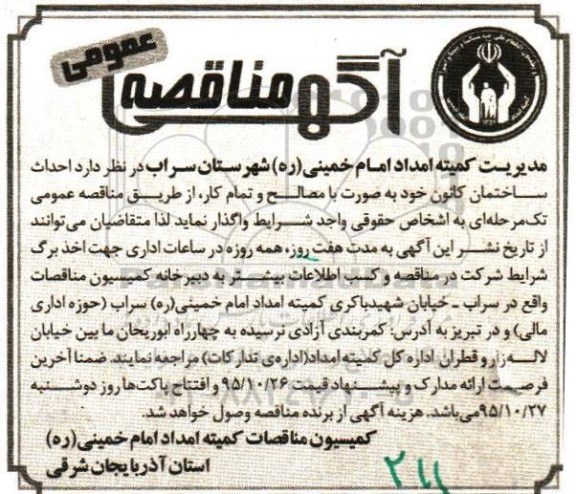 آگهی مناقصه عمومی
مدیریت کمیته امداد امام خمینی (ره) شهرستان سراب در نظر دارد احداث
ساختمان کانون خود به صورت با مصالح و تمام کار، از طریق مناقصه عمومی
تک‌مرحله‌ای به اشخاص حقوقی واجد شرایط واگذار نماید لذا متقاضیان می‌توانند
از تاریخ نشر این آگهی به مدت هفت روز، همه روزه در ساعات اداری جهت اخذ برگ
شرایط شرکت در مناقصه و کسب اطلاعات بیشتر به دبیرخانه کمیسیون مناقصات
واقع در سراب ـ خیابان شهید باکری کمیته امداد امام خمینی(ره) سراب (حوزه اداری
مالی) و در تبریز به آدرس: کمربندی آزادی نرسیده به چهارراه ابوریحان مابین خیابان
لاله‌زار و قطران اداره کل کمیته امداد(اداره‌ی تدارکات) مراجعه نمایند. ضمنا آخرین
فرصت ارائه مدارک و پیشنهاد قیمت ۹۵/۱۰/۲۶ و افتتاح پاکت‌ها روز دوشنبه
۹۵/۱۰/۲۷ می‌باشد. هزینه آگهی از برنده مناقصه وصول خواهد شد.
کمیسیون مناقصات کمیته امداد امام خمینی (ره)
استان آذربایجان شرقی
ParsNamadData